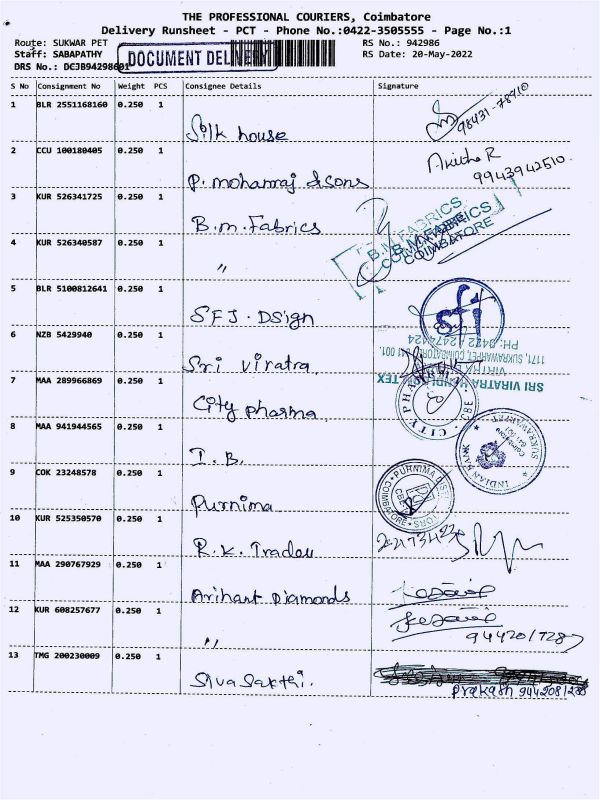 THE PROFESSIONAL COURIERS, Coimbatore
Delivery Runsheet - PCT - Phone No.:0422-3505555 - Page No.:1
Route: SUKWAR PET RS No.: 942986
Staff: SABAPATHY RS Date: 20-May-2022
DRS No.: DCJB94298601
DOCUMENT DELIVERY
S No Consignment No Weight PCS Consignee Details Signature
1 BLR 2551168160 0.250 1
Silk house 98431-78910
2 CCU 100180405 0.250 1
P. mohanraj & Sons Ankitha R 9943942510
3 KUR 526341725 0.250 1
B.M. Fabrics B.M. FABRICS COIMBATORE
4 KUR 526340587 0.250 1
〃
5 BLR 5100812641 0.250 1
SFJ. DSign sfj
6 NZB 5429940 0.250 1
Sri Viratra
SRI VIRATRA TEX
1171, SUKRAWARPET, COIMBATORE 641 001.
PH: 0422 2474124
7 MAA 289966869 0.250 1
City pharma CITY PHARMA CBE
8 MAA 941944565 0.250 1
I.B. INDIAN BANK SUKRAWARPET Coimbatore 641 001
9 COK 23248578 0.250 1
Purnima PURNIMA DISTRI COIMBATORE CBE
10 KUR 525350570 0.250 1
R.K. Traders
11 MAA 290767929 0.250 1
Arihant Diamonds
12 KUR 608257677 0.250 1
〃
13 TMG 200230009 0.250 1
Siva Sakthi.
prakash